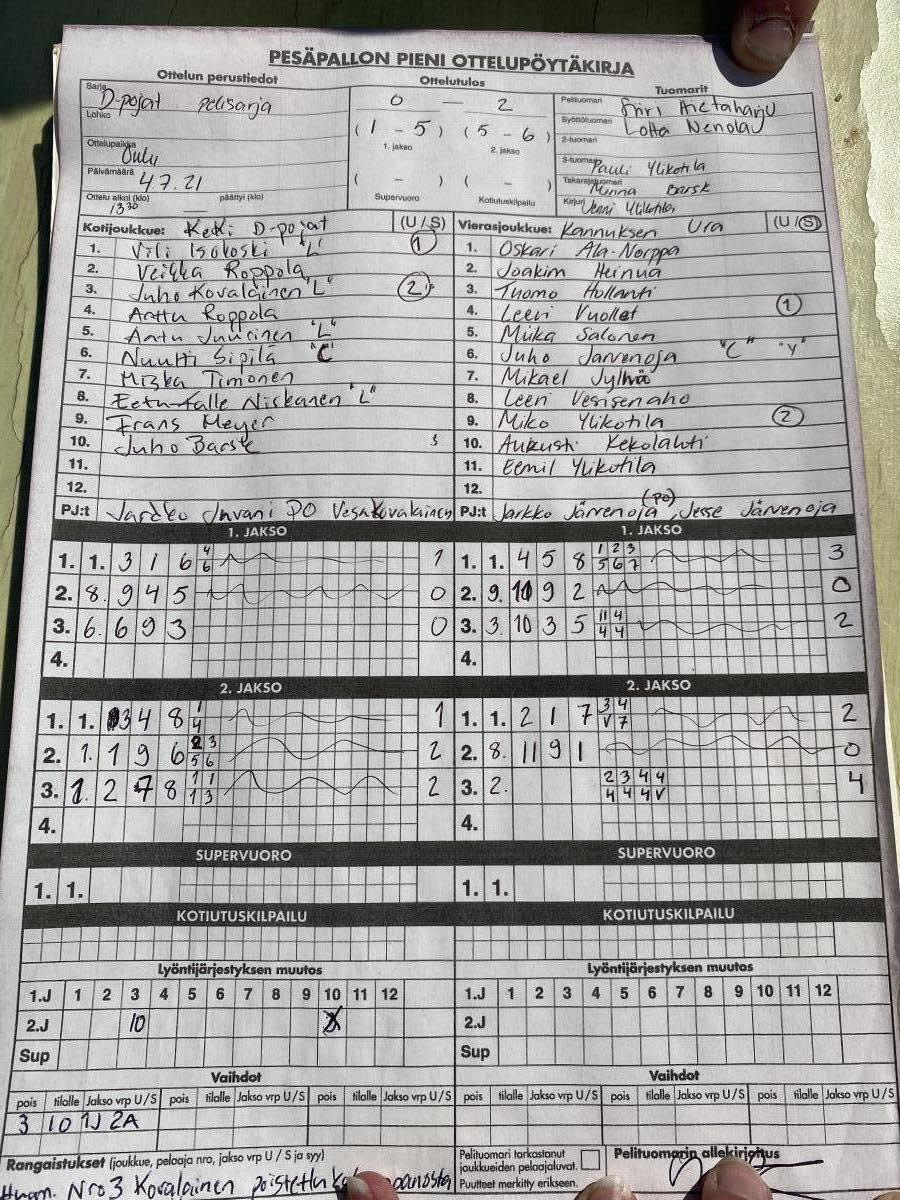 PESÄPALLON PIENI OTTELUPÖYTÄKIRJA
Ottelun perustiedot
Ottelutulos
Tuomarit
Sarja D-pojat pelisarja
Lohko
Ottelupaikka Oulu
Päivämäärä 4.7.21
Ottelu alkoi (klo) 13.30 päättyi (klo)
0 — 2
(1 - 5) (5 - 6)
1. jakso 2. jakso
( - ) ( - )
Supervuoro Kotiutuskilpailu
Pelituomari
Syöttötuomari Lotta
2-tuomari
3-tuomari Pauli Ylikotila
Takarajatuomari Minna Barsk
Kirjuri Ylikotila
Kotijoukkue: KeKi D-pojat (U / S)
1. Vili Isokoski "L" 1
2. Veikka Roppola
3. Juho Kovalainen "L" 2
4. Anttu Roppola
5. Antu Juurinen "L"
6. Nuutti Sipilä "C"
7. Miska Timonen
8. Eetu-Kalle Niskanen "L"
9. Frans Meyer
10. Juho Barsk
11.
12.
PJ:t PO Vesa Kovalainen
Vierasjoukkue: Kannuksen Ura (U / S)
1. Oskari Ala-Norppa
2. Joakim Heinua
3. Tuomo Hollanti
4. Leevi Vuollet 1
5. Miika Salonen
6. Juho Järvenoja "C" "V"
7. Mikael Jylhä
8. Leevi Vesisenaho
9. Miko Ylikotila 2
10. Aukusti Kekolahti
11. Eemil Ylikotila
12.
PJ:t Jarkko Järvenoja (PO), Jesse Järvenoja
1. JAKSO
1. 1. 3 1 6 6 4 6 1
2. 8. 9 4 5 0
3. 6. 6 9 3 0
4.
1. JAKSO
1. 1. 4 5 8 1 2 3 5 6 7 3
2. 9. 10 9 2 0
3. 3. 10 3 5 11 4 4 4 2
4.
2. JAKSO
1. 1. 3 4 8 1 4 1
2. 1. 1 9 6 2 3 5 6 2
3. 1. 2 7 8 1 1 1 3 2
4.
2. JAKSO
1. 1. 2 1 7 3 4 V 7 2
2. 8. 11 9 1 0
3. 2. 2 3 4 4 4 4 4 V 4
4.
SUPERVUORO
1. 1.
SUPERVUORO
1. 1.
KOTIUTUSKILPAILU
KOTIUTUSKILPAILU
Lyöntijärjestyksen muutos
1.J 1 2 3 4 5 6 7 8 9 10 11 12
2.J 10
Sup
Lyöntijärjestyksen muutos
1.J 1 2 3 4 5 6 7 8 9 10 11 12
2.J
Sup
Vaihdot
pois tilalle Jakso vrp U / S pois tilalle Jakso vrp U / S pois tilalle Jakso vrp U / S
3 10 1J 2A
Vaihdot
pois tilalle Jakso vrp U / S pois tilalle Jakso vrp U / S pois tilalle Jakso vrp U / S
Rangaistukset (joukkue, pelaaja nro, jakso vrp U / S ja syy)
Huom. Nro 3 Kovalainen poistettu
Pelituomari tarkastanut joukkueiden pelaajaluvat.
Puutteet merkitty erikseen.
Pelituomarin allekirjoitus